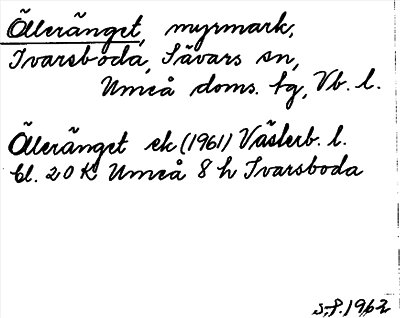 Älleränget, myrmark,
Ivarsboda, Sävars sn,
Umeå doms. tg, Vb. l.
Älleränget ek (1961) Västerb. l.
bl. 20 K Umeå 8 h Ivarsboda
S.F. 1962